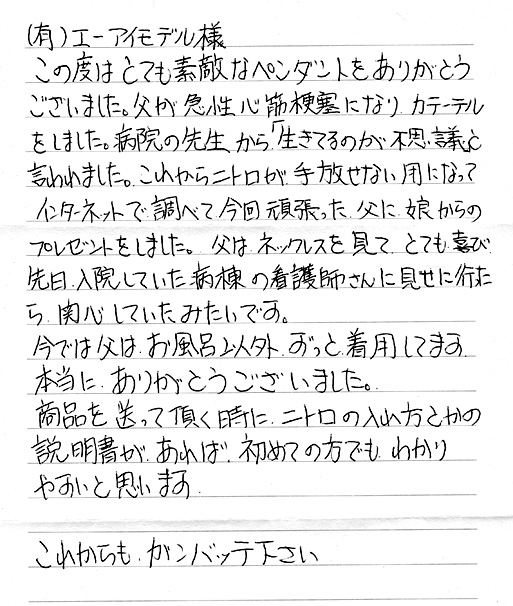 (有)エーアイモデル様
この度はとても素敵なペンダントをありがとう
ございました。父が急性心筋梗塞になり カテーテル
をしました。病院の先生から「生きてるのが不思議」と
言われました。これからニトロが手放せない用になって
インターネットで調べて今回頑張った父に娘からの
プレゼントをしました。 父はネックレスを見て とても喜び
先日 入院していた病棟の看護師さんに見せに行った
ら 関心していたみたいです。
今では父は お風呂以外 ずっと着用してます
本当に ありがとうございました。
商品を送って頂く時に ニトロの入れ方とかの
説明書が あれば 初めての方でも わかり
やすいと思います
これからも ガンバッテ下さい